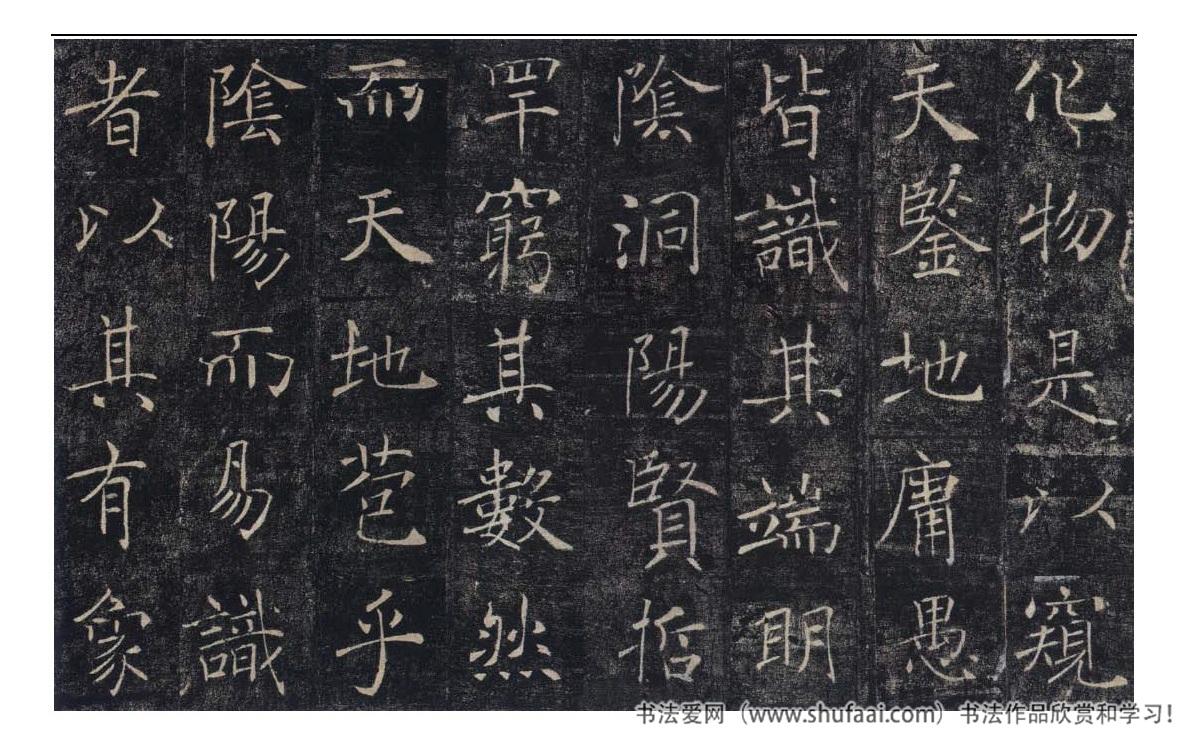 化物是以窺
天鑒地庸愚
皆識其端明
陰洞陽賢哲
罕窮其數然
而天地苞乎
陰陽而易識
者以其有象
书法爱网（www.shufaai.com）书法作品欣赏和学习！